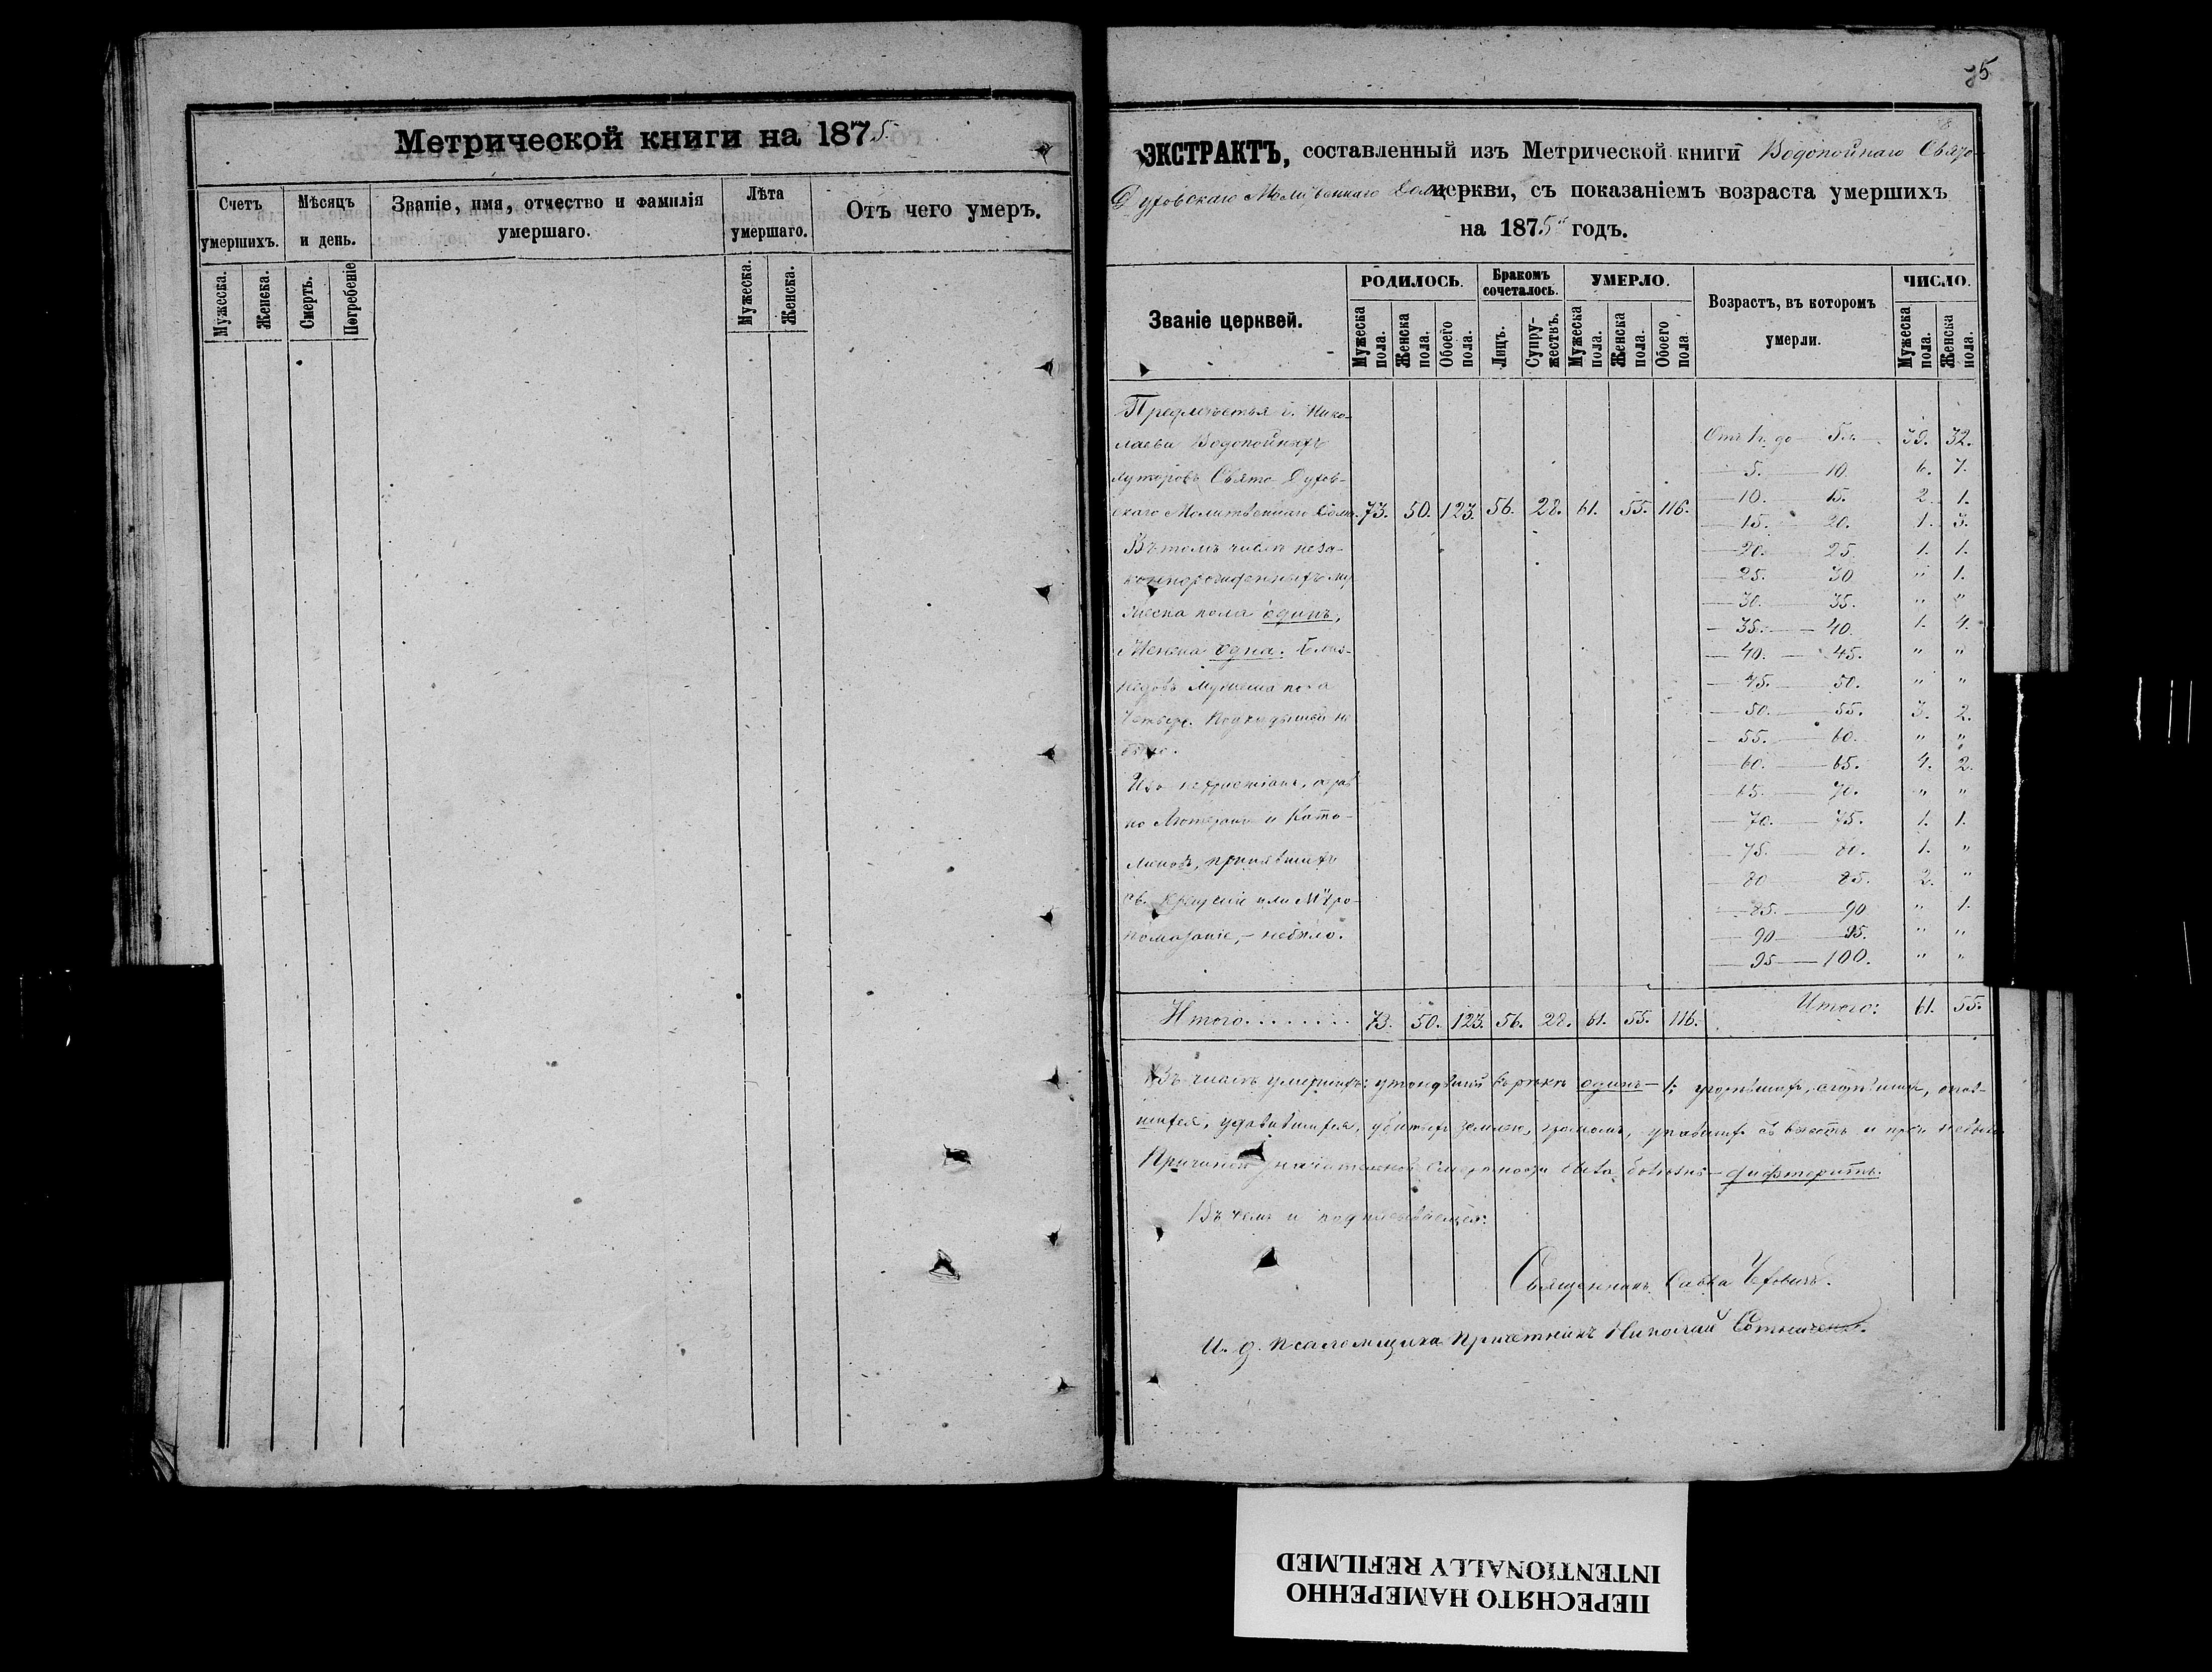 Метрической книги на 1875.
Счетъ умершихъ.
Мѣсяцъ и день.
Званіе, имя, отчество и фамилія умершаго.
Лѣта умершаго.
Отъ чего умеръ.
Мужеска.
Женска.
Смерть.
Погребеніе
Мужеска.
Женска.
85
ЭКСТРАКТЪ, составленный изъ Метрической книги Водопойнаго Свято-
Духовскаго Молитвеннаго Дома церкви, съ показаніемъ возраста умершихъ
на 1875й годъ.
Званіе церквей.
РОДИЛОСЬ.
Бракомъ сочеталось.
УМЕРЛО.
Возрастъ, въ которомъ умерли.
ЧИСЛО.
Мужеска пола.
Женска пола.
Обоего пола.
Лицъ.
Супружествъ.
Мужеска пола.
Женска пола.
Обоего пола
Мужеска пола.
Женска пола.
Предмѣстья г. Нико-
лаева Водопойныхъ
хуторовъ Свято-Духов-
скаго Молитвеннаго Дома. 73. 50. 123. 56. 28. 61. 55. 116.
Въ томъ числѣ неза-
коннорожденныхъ му
жеска пола одинъ,
Женска одна. Близ-
нецовъ мужеска пола
Четыре. Подкидышей не
было.
Изъ нехристіанъ, а рав
но Лютеранъ и Като-
ликовъ, принявшихъ
Св. Крещеніе или Мѵро-
помазаніе, – небыло.
Отъ 1г. до 5г. 39. 32.
5. 10. 6. 7.
10. 15. 2. 1.
15. 20. 1. 3.
20. 25. 1. 1.
25. 30 " 1.
30. 35. " "
35. 40. 1. 4.
40. 45. " "
45. 50. " "
50. 55. 3. 2.
55. 60. " "
60. 65. 4. 2.
65. 70. " "
70. 75. 1. 1.
75. 80. 1. "
80 85. 2. "
85. 90 " 1.
90 95. " "
95 100. " "
Итого....... 73. 50. 123. 56. 28. 61. 55. 116. Итого: 61. 55.
Въ числѣ умершихъ: утонувшій въ рѣкѣ одинъ – 1; угорѣвшихъ,
удавившихся, убитыхъ землею, громомъ, упавших. съ высоты и проч. небыло
Причиной значительной смертности была болѣзнь – дифтеритъ.
Въ чемъ и подписываемся:
Священникъ Савва
И. д. псаломщика Причетникъ Николай
ПЕРЕСНЯТО НАМЕРЕННО
INTENTIONALLY REFILMED